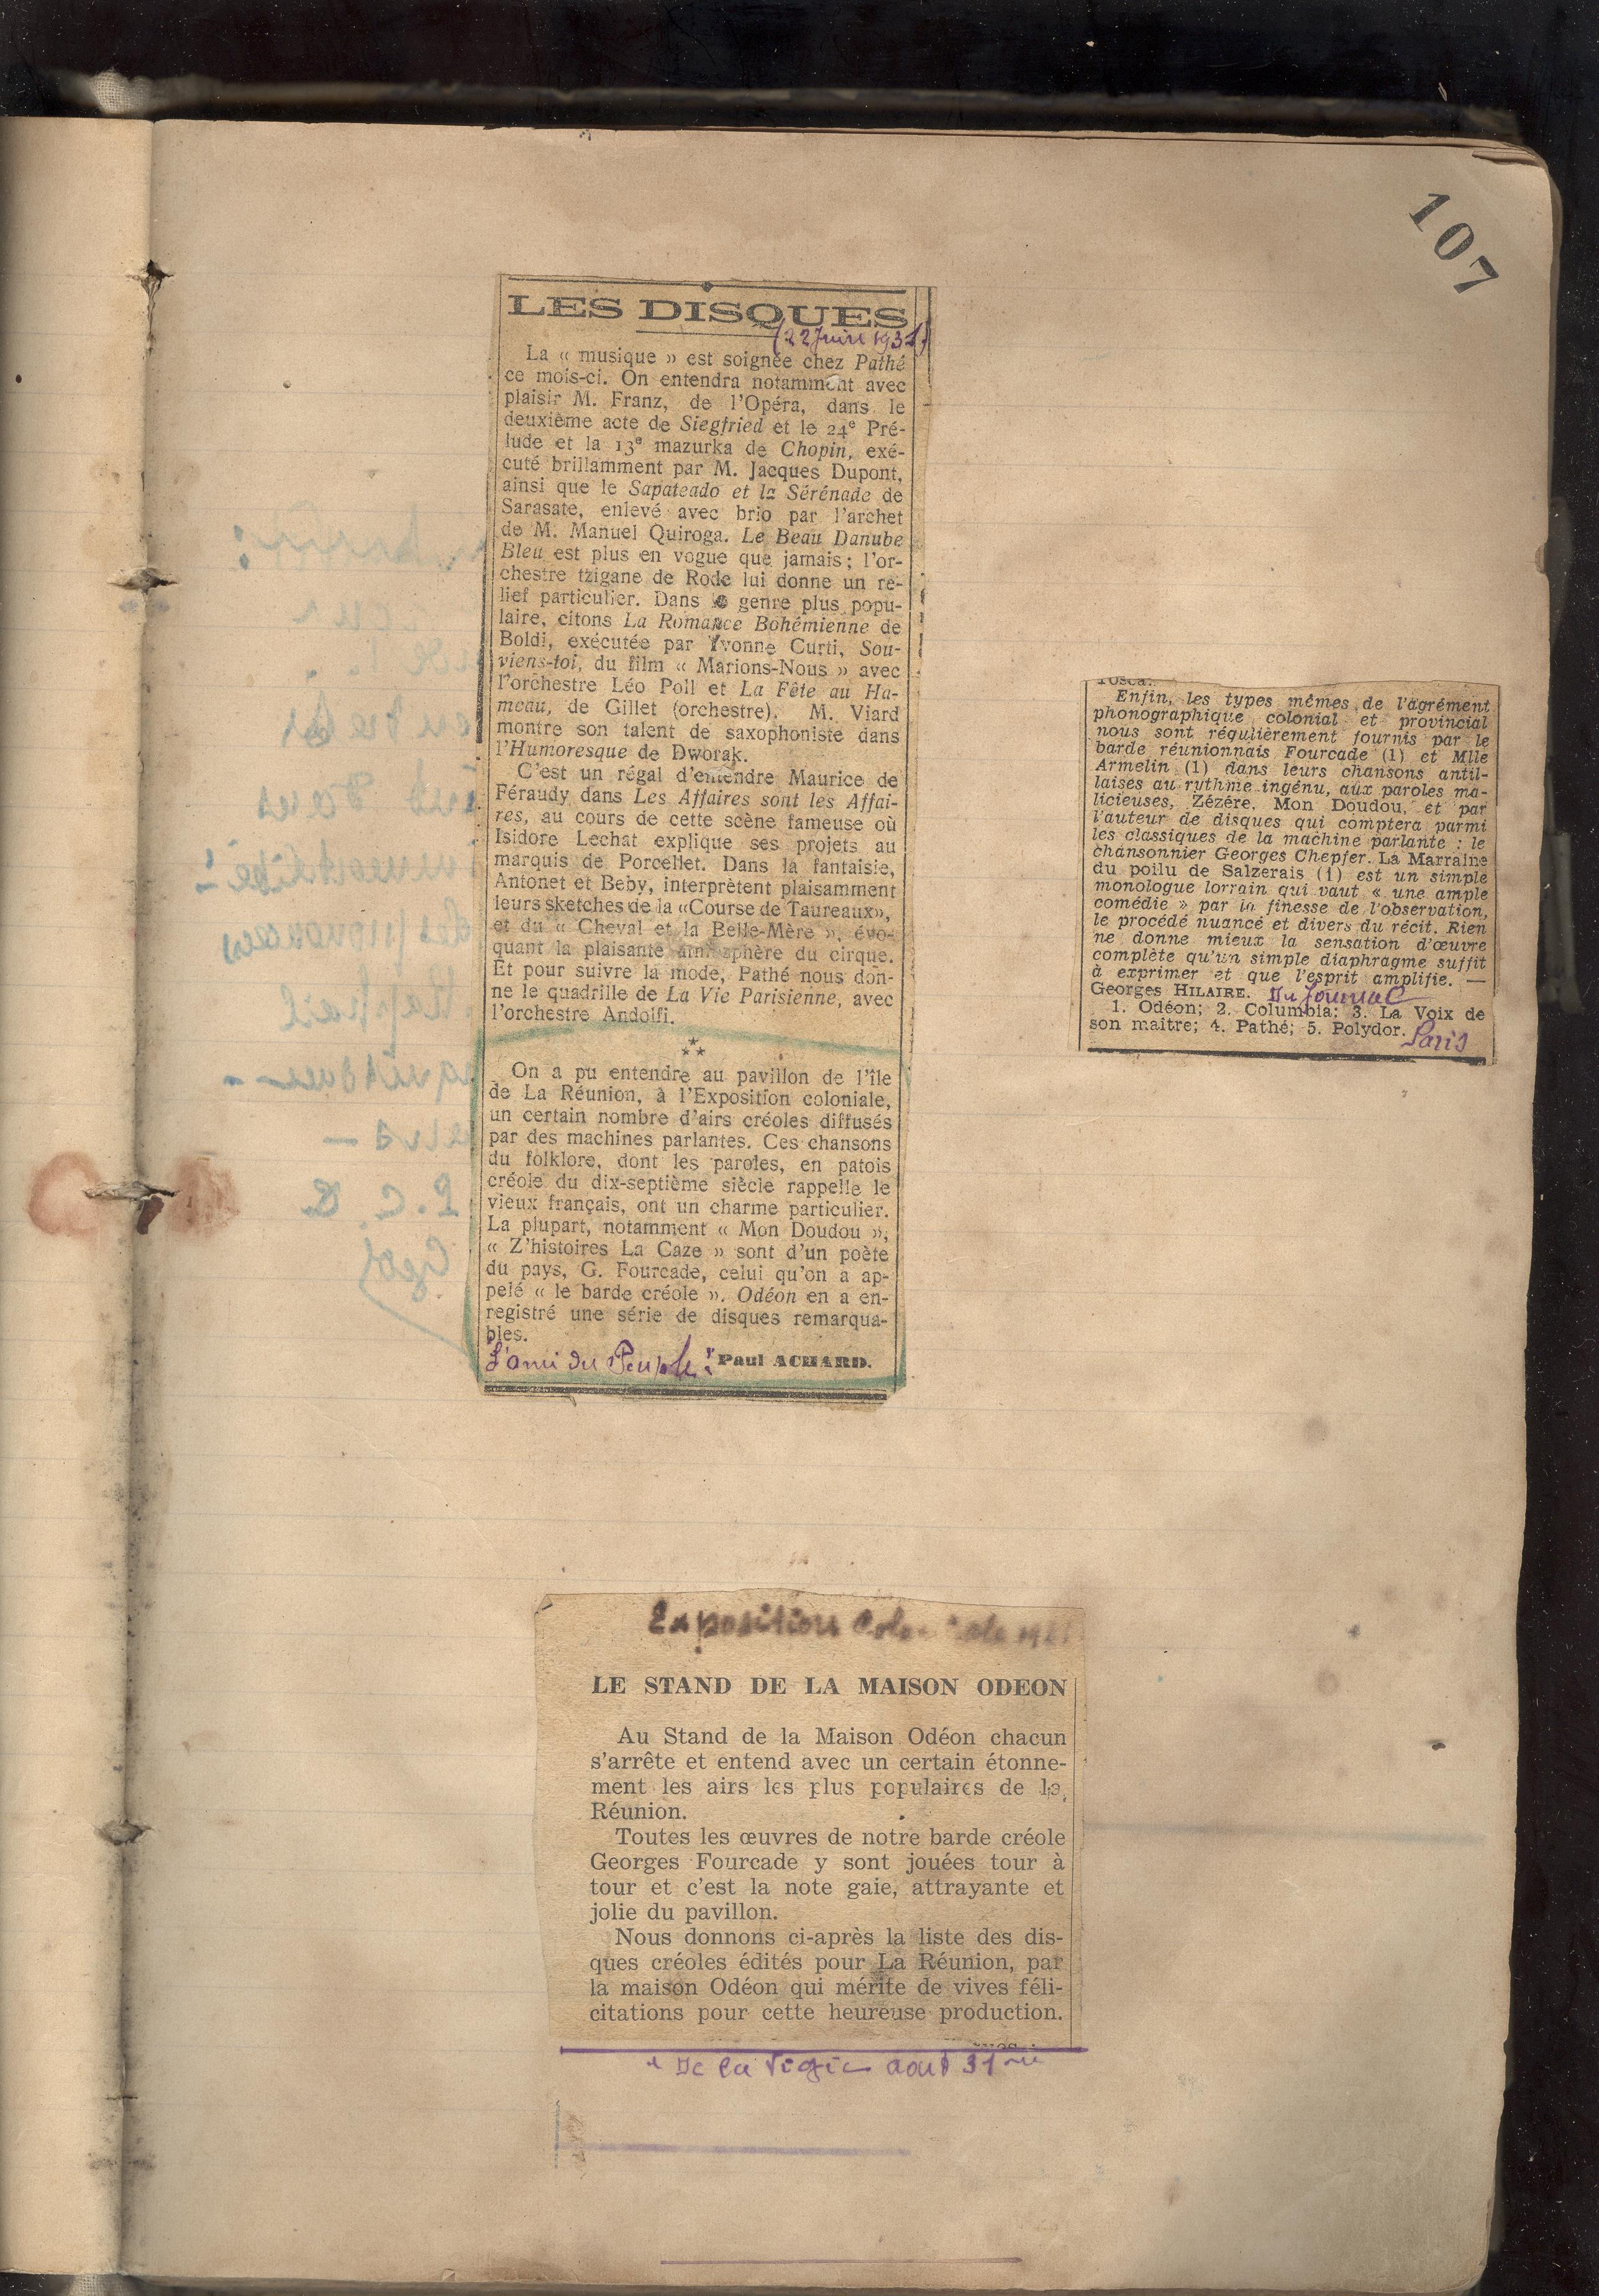 107
LES DISQUES
(22 Juin 1931)
La « musique » est soignée chez Pathé
ce mois-ci. On entendra notamment avec
plaisir M. Franz, de l'Opéra, dans le
deuxième acte de Siegfried et le 24e Pré-
lude et la 13e mazurka de Chopin, exé-
cuté brillamment par M. Jacques Dupont,
ainsi que le Sapateado et la Sérénade de
Sarasate, enlevé avec brio par l'archet
de M. Manuel Quiroga. Le Beau Danube
Bleu est plus en vogue que jamais ; l'or-
chestre tzigane de Rode lui donne un re-
lief particulier. Dans le genre plus popu-
laire, citons La Romance Bohémienne de
Boldi, exécutée par Yvonne Curti, Sou-
viens-toi, du film « Marions-Nous » avec
l'orchestre Léo Poll et La Fête au Ha-
meau, de Gillet (orchestre). M. Viard
montre son talent de saxophoniste dans
l'Humoresque de Dworak.
C'est un régal d'entendre Maurice de
Féraudy dans Les Affaires sont les Affai-
res, au cours de cette scène fameuse où
Isidore Lechat explique ses projets au
marquis de Porcellet. Dans la fantaisie,
Antonet et Beby, interprètent plaisamment
leurs sketches de la «Course de Taureaux»,
et du « Cheval et la Belle-Mère », évo-
quant la plaisante atmosphère du cirque.
Et pour suivre la mode, Pathé nous don-
ne le quadrille de La Vie Parisienne, avec
l'orchestre Andolfi.
* * *
On a pu entendre au pavillon de l'île
de La Réunion, à l'Exposition coloniale,
un certain nombre d'airs créoles diffusés
par des machines parlantes. Ces chansons
du folklore, dont les paroles, en patois
créole du dix-septième siècle rappelle le
vieux français, ont un charme particulier.
La plupart, notamment « Mon Doudou »,
« Z'histoires La Caze » sont d'un poète
du pays, G. Fourcade, celui qu'on a ap-
pelé « le barde créole ». Odéon en a en-
registré une série de disques remarqua-
bles.
L'ami du Peuple : Paul ACHARD.
Tosca.
Enfin, les types mêmes de l'agrément
phonographique colonial et provincial
nous sont régulièrement fournis par le
barde réunionnais Fourcade (1) et Mlle
Armelin (1) dans leurs chansons antil-
laises au rythme ingénu, aux paroles ma-
licieuses, Zézére, Mon Doudou, et par
l'auteur de disques qui comptera parmi
les classiques de la machine parlante : le
chansonnier Georges Chepfer. La Marraine
du poilu de Salzerais (1) est un simple
monologue lorrain qui vaut « une ample
comédie » par la finesse de l'observation,
le procédé nuancé et divers du récit. Rien
ne donne mieux la sensation d'œuvre
complète qu'un simple diaphragme suffit
à exprimer et que l'esprit amplifie. —
Georges HILAIRE. Du Journal
1. Odéon; 2. Columbia; 3. La Voix de
son maître; 4. Pathé; 5. Polydor. Paris
Exposition Coloniale
LE STAND DE LA MAISON ODEON
Au Stand de la Maison Odéon chacun
s'arrête et entend avec un certain étonne-
ment les airs les plus populaires de la
Réunion.
Toutes les œuvres de notre barde créole
Georges Fourcade y sont jouées tour à
tour et c'est la note gaie, attrayante et
jolie du pavillon.
Nous donnons ci-après la liste des dis-
ques créoles édités pour La Réunion, par
la maison Odéon qui mérite de vives féli-
citations pour cette heureuse production.
De la Vigie aout 31